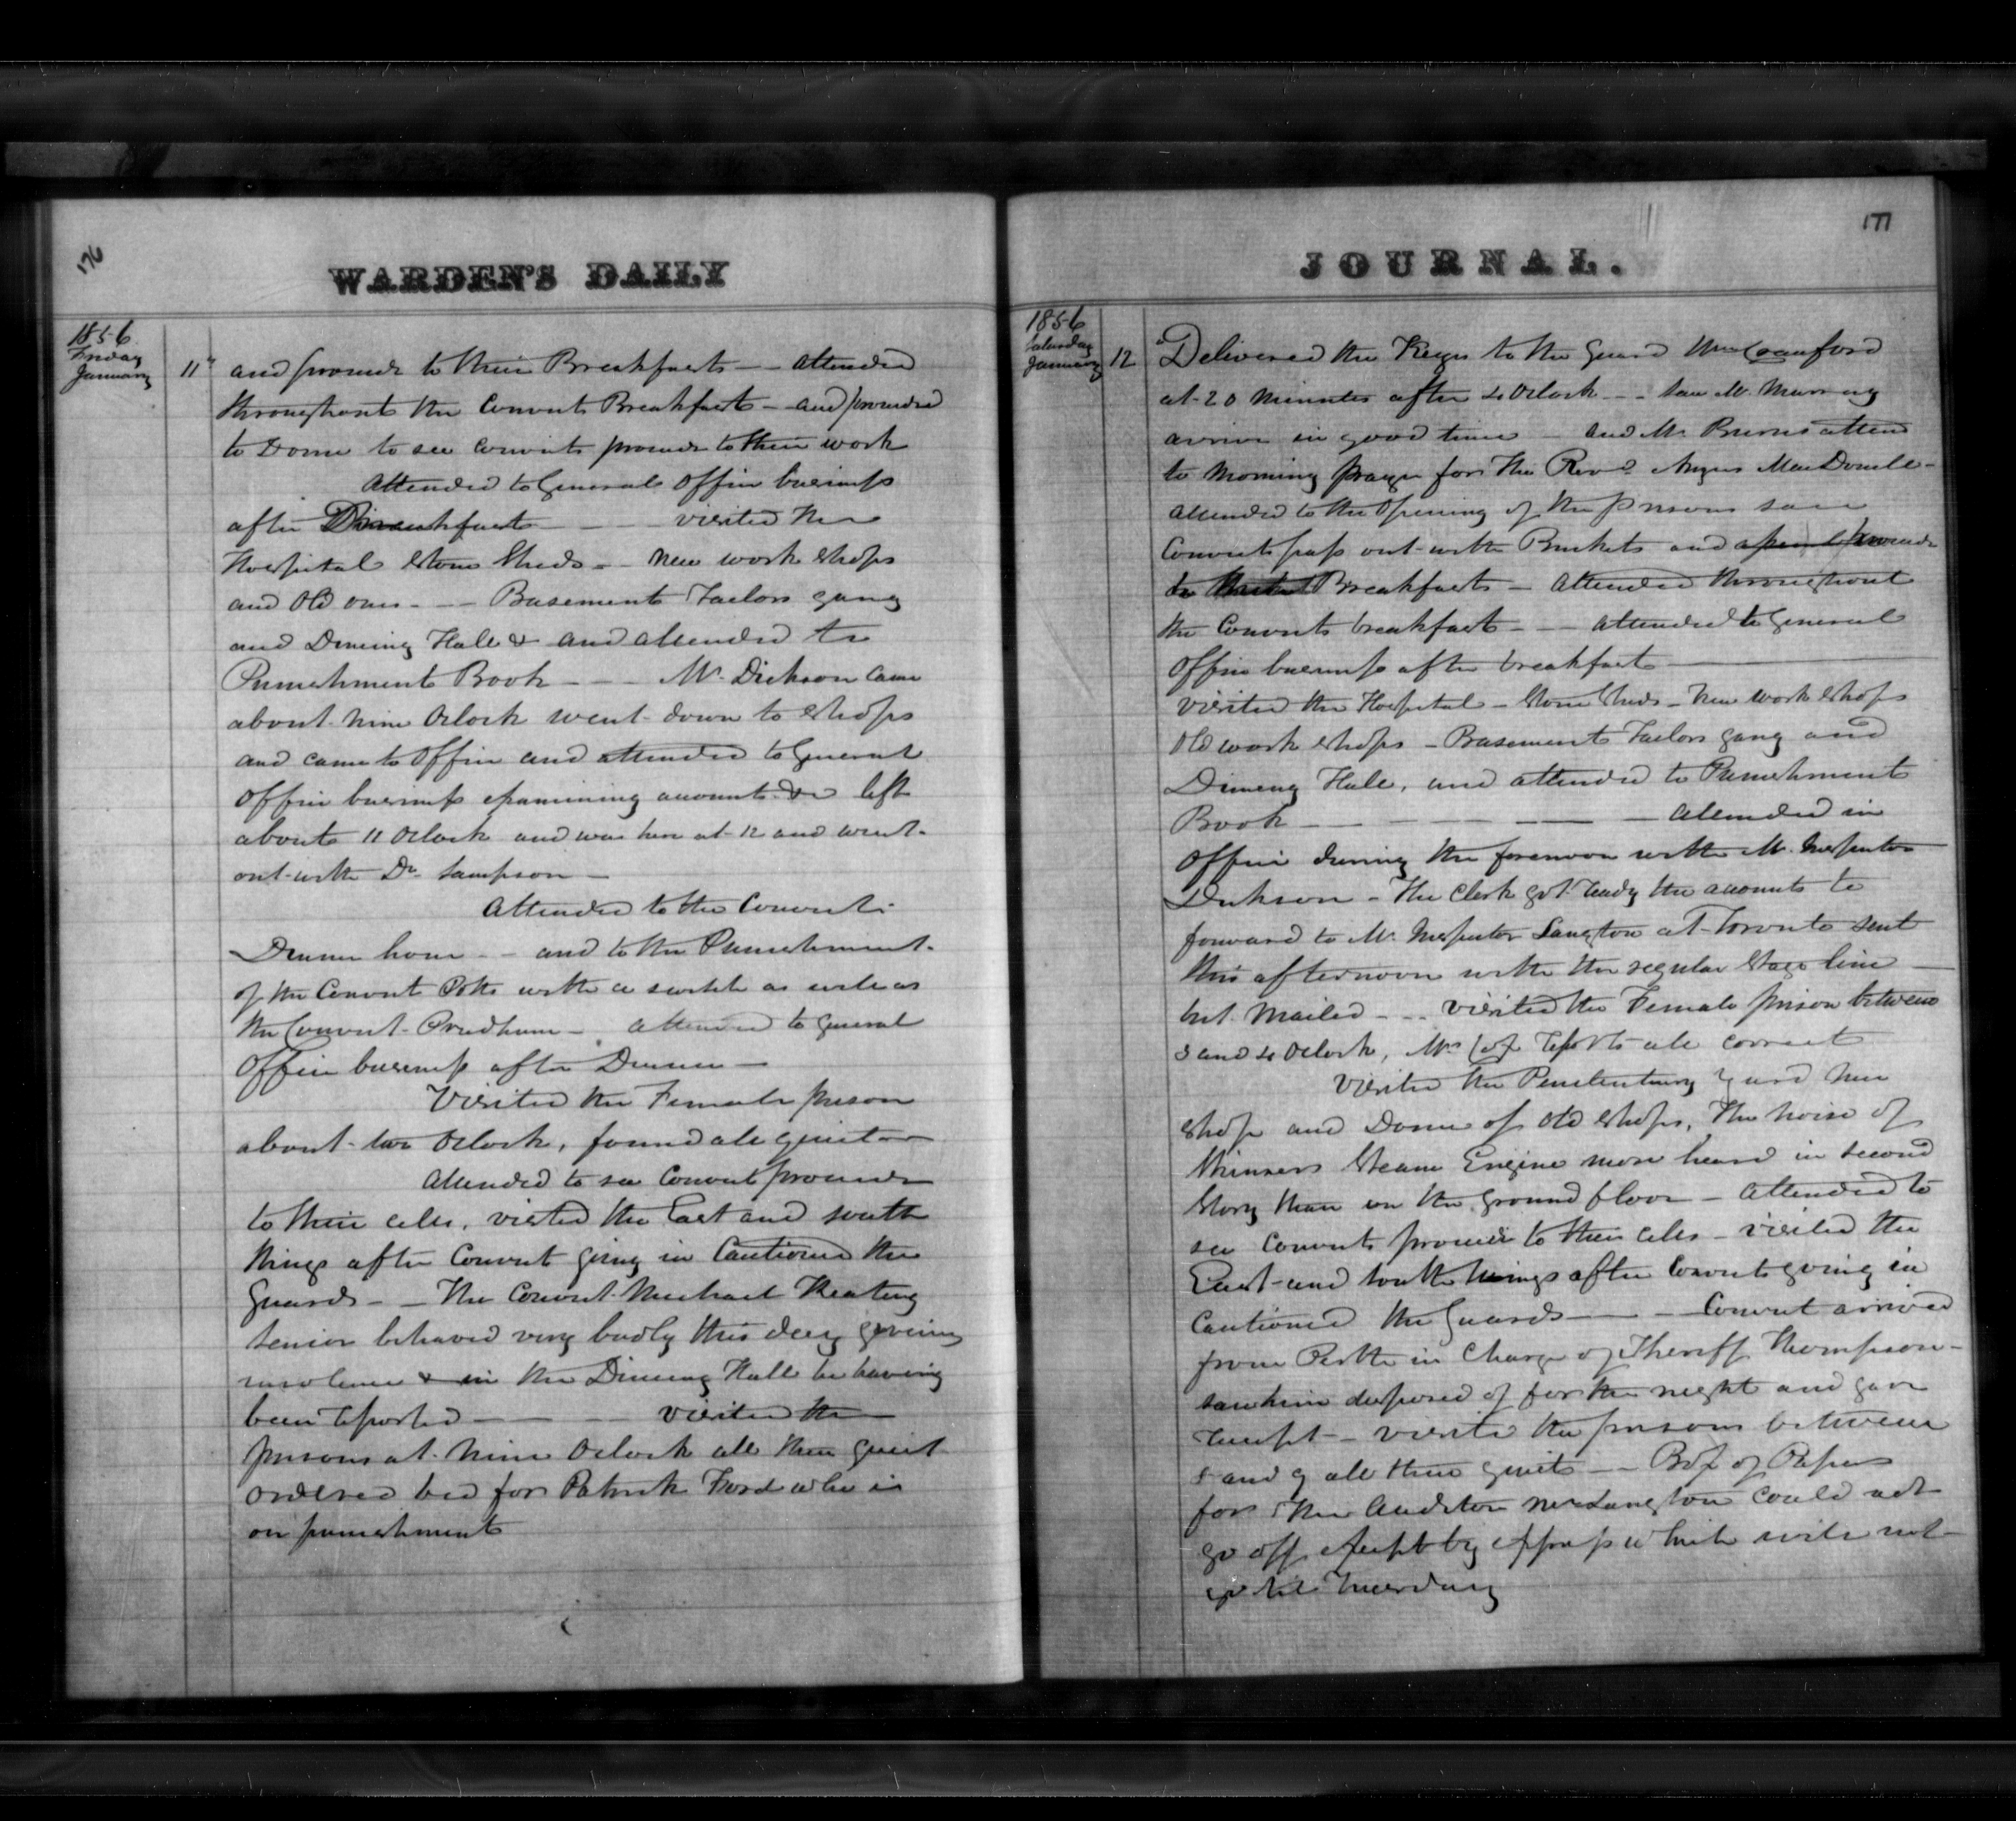 176
WARDEN'S DAILY
1856
Friday
January 11"
and proceed to their Breakfast -- attended
throughout the Convicts Breakfast - and proceeded
to Dome to see Convicts proceed to their work
Attended to General Office business
after Breakfast - - visited the
Hospital Stone Sheds - - New work shops
and Old ones - - - Basement Tailors gang
and Dineing Hall & and attended to
Punishment Book - - - Mr. Dickson Came
about nine Oclock went down to Shops
and came to Office and attended to General
Office business examining accounts &c left
about 11 Oclock and was here at 12 and went
out with Dr. Sampson -
Attended to the Convicts
Dinner hour - - and to the Punishment
of the Convict Potts with a switch as well as
the Convict Prudhum - attended to General
Office business after Dinner -
Visited the Female prison
about two Oclock, found all quiet
Attended to see Convict proceed
to their cells, visited the East and South
Wings after Convict going in Cautioned the
Guards - - The Convict Michael Keating
senior behaved very badly this day giveing
insolence & in the Dineing Hall he having
been reported - - - visited the
prisons at nine Oclock all then quiet
ordered bed for Patrick Ford who is
on punishment
177
JOURNAL.
1856
Saturday
January 12
Delivered the Keys to the Guard Crauford
at 20 minutes after 4 Oclock - - Saw Mr. Murray
arrive in good time - and Mr. Burns attend
to Morning prayer for the Revd. Angus MacDonell -
attended to the Opening of the prisons saw
Convicts pass out with Buckets and proceed
to Breakfast - attended throughout
the Convicts breakfast - - attended to General
Office business after breakfast
Visited the Hospital - Stone Sheds - New work Shops
Old work Shops - Basement Tailors gang and
Dineing Hall, and attended to Punishment
Book - - - - - Attended in
Office during the forenoon with Mr. Inspector
Dickson - The Clerk got ready the accounts to
forward to Mr. Inspector Langton at Toronto sent
this afternoon with the regular Stage line
but Mailed - - - Visited the Female prison between
3 and 4 Oclock, Mrs. Cox reports all correct
Visited the Penitentiary Yard New
Shop and Dome of Old Shops, The noise of
Skinners Steam Engine more heard in Second
Story than on the ground floor - Attended to
see Convicts proceed to their cells - Visited the
East and South Wings after Convicts going in
Cautioned the Guards - - Convict arrived
from Perth in Charge of Sheriff Thompson -
saw him disposed of for the night and gave
receipt - visited the prisons between
8 and 9 all then quiet - - Box of Papers
for the Auditor Mr Langton could not
go off except by Express which will not
go till Tuesday